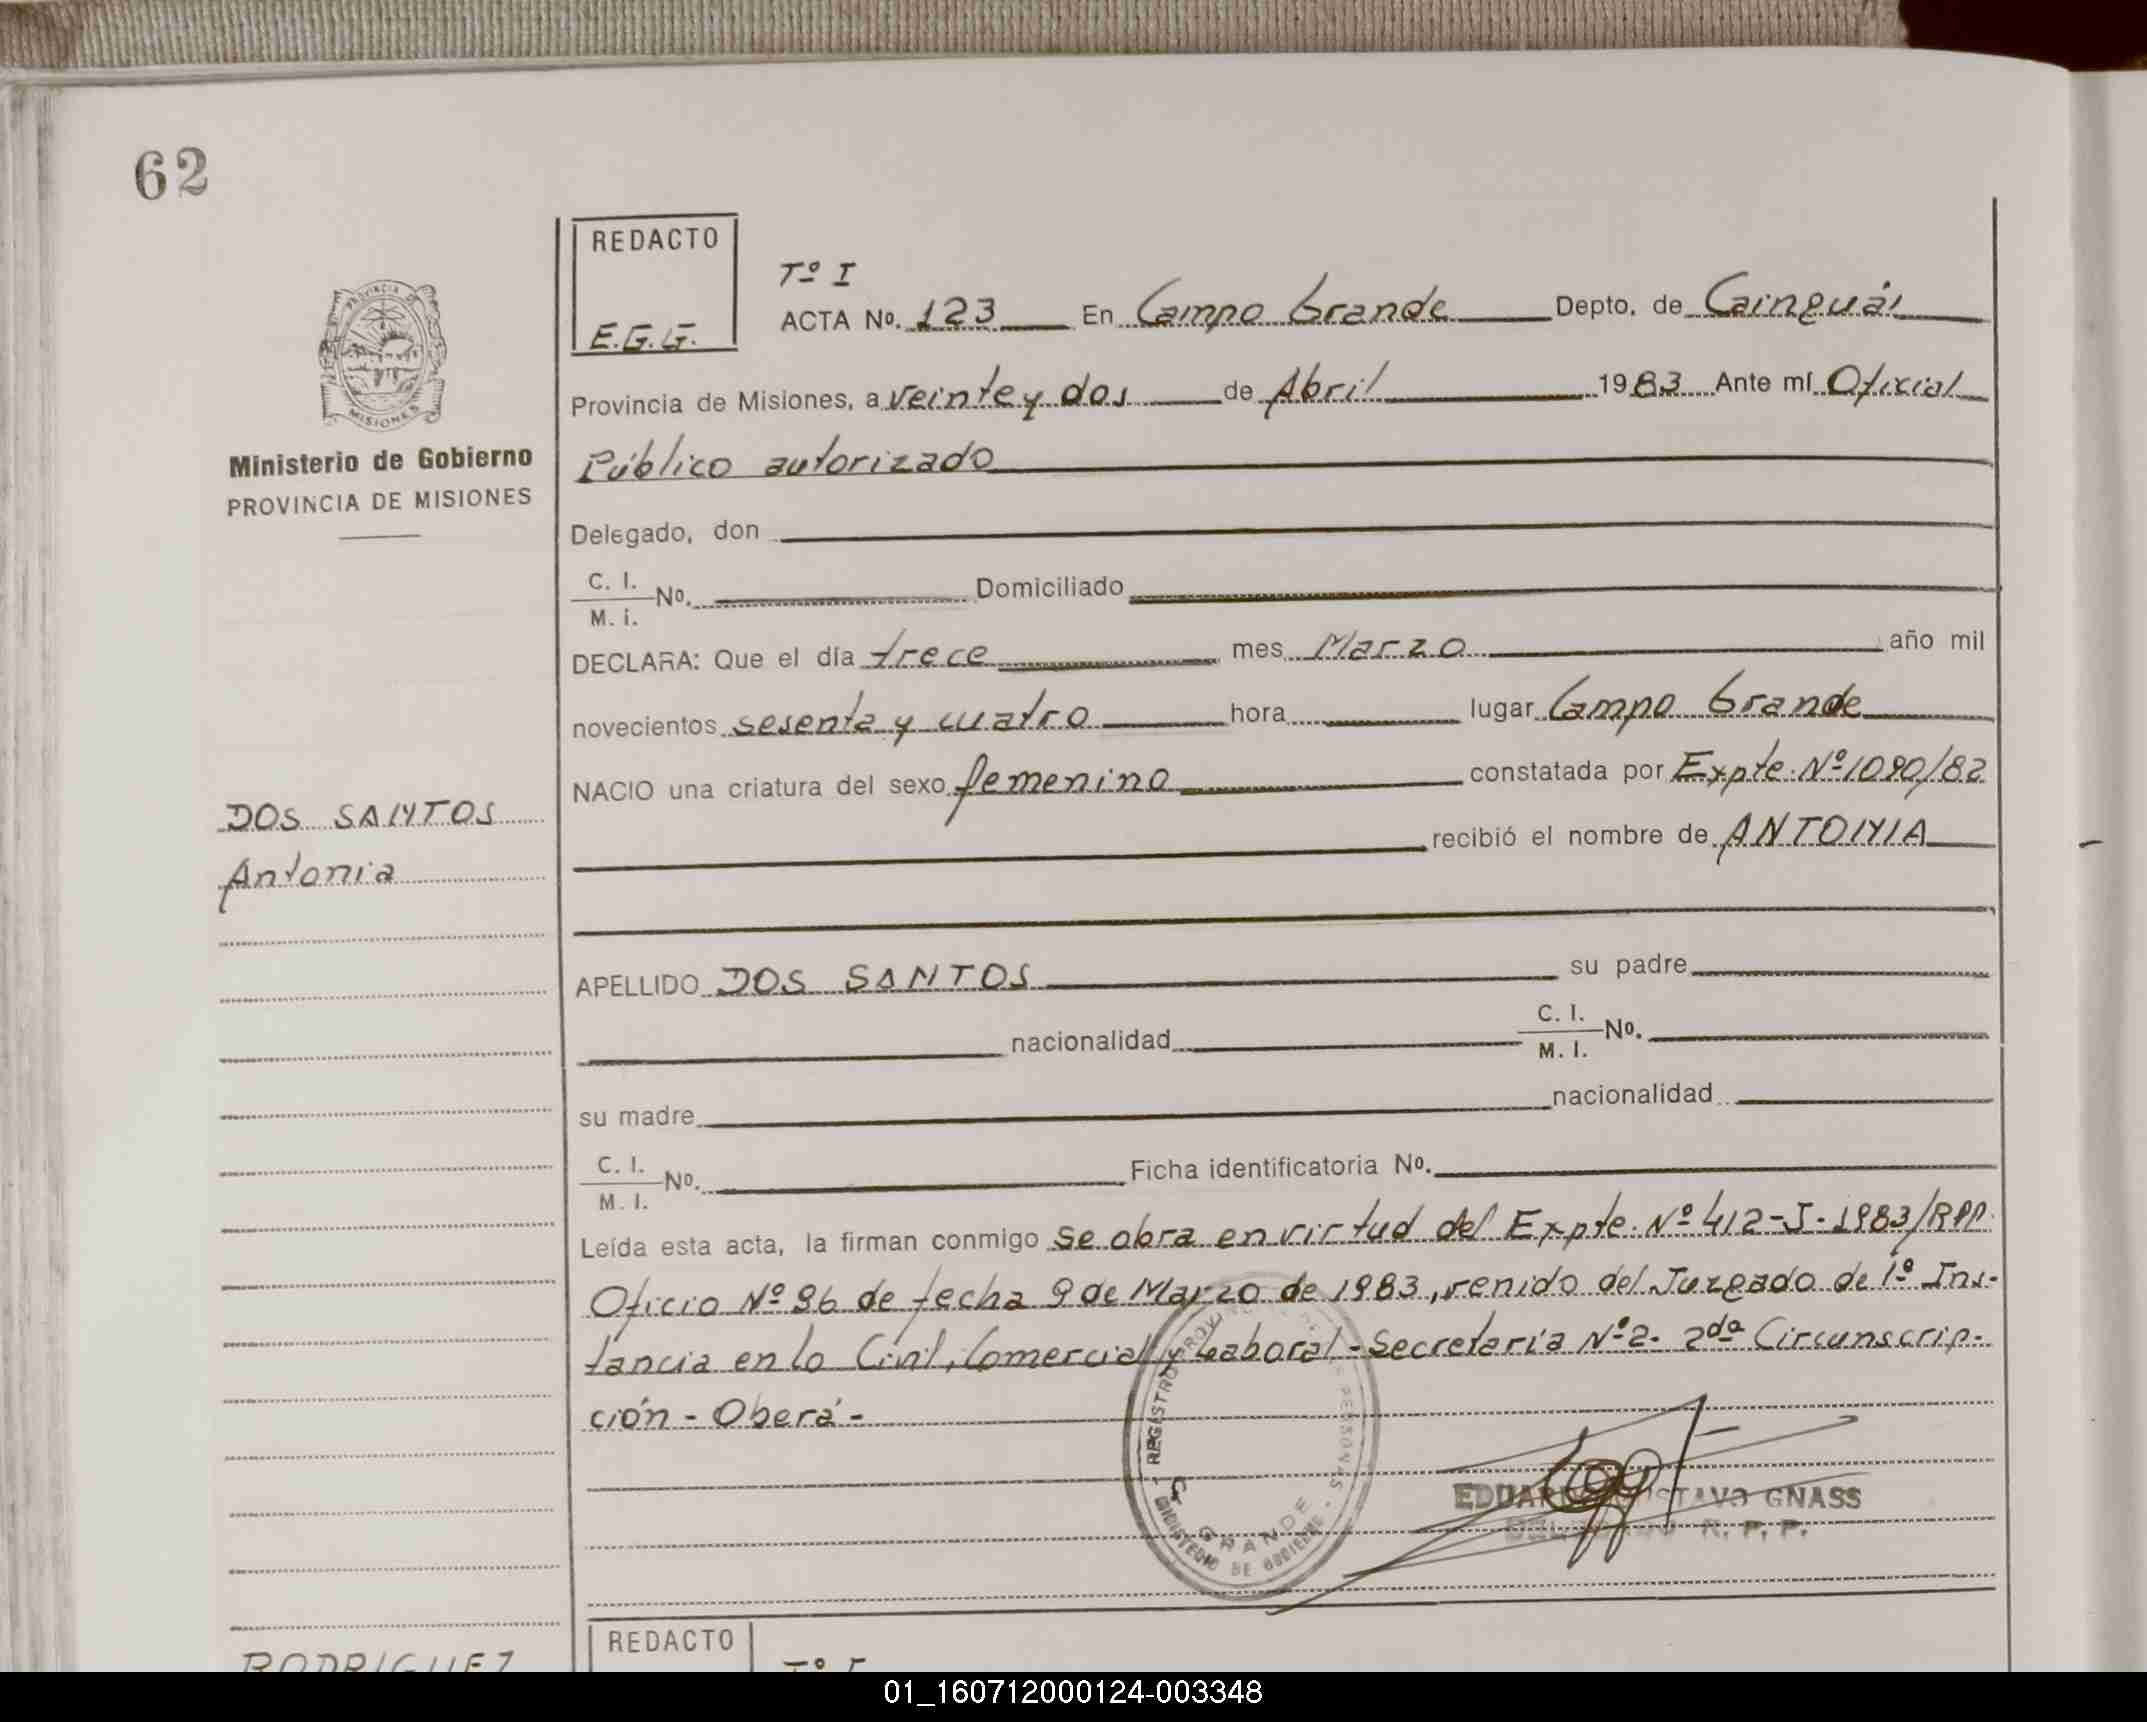 62
REDACTO
E.G.G.
Tº I
ACTA Nº. 123 En Campo Grande Depto. de Cainguás
PROVINCIA DE
MISIONES
Ministerio de Gobierno
PROVINCIA DE MISIONES
Provincia de Misiones, a veinte y dos de Abril 1983 Ante mí Oficial
Público autorizado
Delegado, don
C. I.
M. i. Nº. Domiciliado
DECLARA: Que el día trece mes Marzo año mil
novecientos sesenta y cuatro hora lugar Campo Grande
NACIO una criatura del sexo femenino constatada por Expte. Nº 1090/82
DOS SANTOS
Antonia
recibió el nombre de ANTONIA
APELLIDO DOS SANTOS su padre
nacionalidad C. I.
M. I. Nº.
su madre nacionalidad
C. I.
M. I. Nº. Ficha identificatoria Nº.
Leída esta acta, la firman conmigo Se obra en virtud del Expte. Nº 412-J-1983/RPP.
Oficio Nº 96 de fecha 9 de Marzo de 1983, venido del Juzgado de 1º Ins-
tancia en lo Civil, Comercial y Laboral - Secretaría Nº 2. 2da Circunscrip-
ción - Oberá -
REGISTRO PROVINCIAL DE LAS PERSONAS
C. GRANDE
MINISTERIO DE GOBIERNO
EDUARDO GUSTAVO GNASS
DELEGADO R. P. P.
REDACTO
Tº I
RODRIGUEZ
01_160712000124-003348